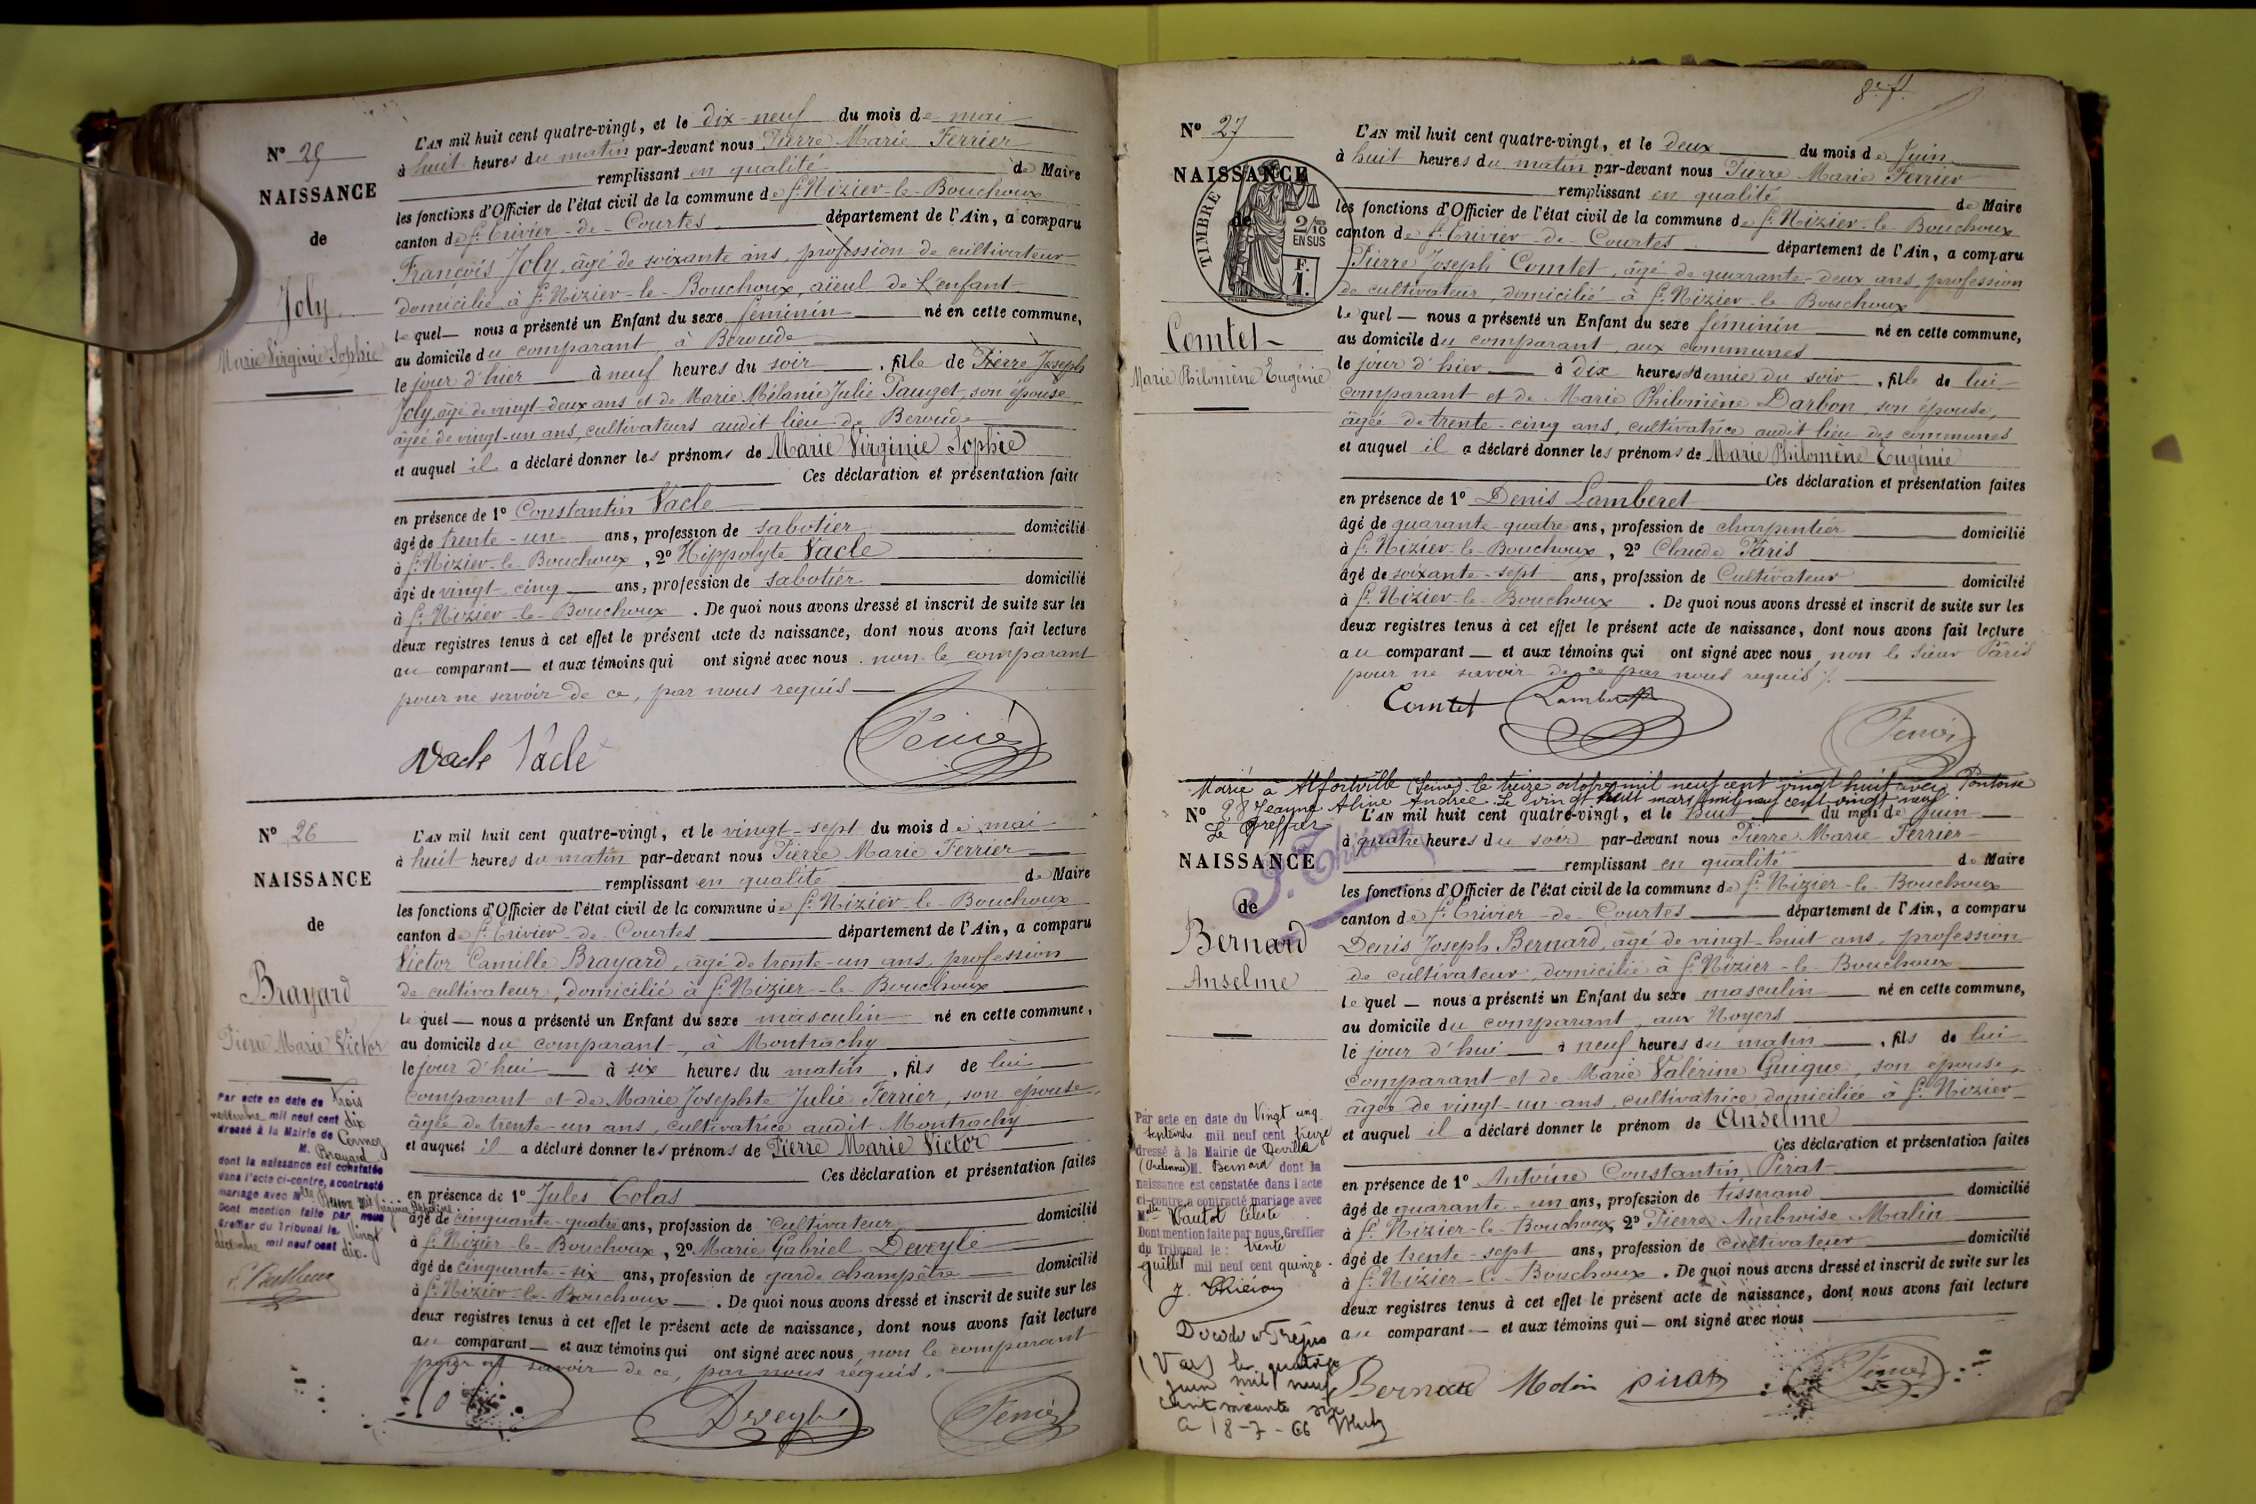 N° 25
NAISSANCE
de
Joly
Marie Virginie Sophie
L'AN mil huit cent quatre-vingt, et le dix-neuf du mois de mai
à huit heures du matin par-devant nous Pierre Marie Ferrier
remplissant en qualité de Maire
les fonctions d'Officier de l'état civil de la commune de St Nizier-le-Bouchoux
canton de St Trivier-de-Courtes département de l'Ain, a comparu
François Joly, âgé de soixante ans, profession de cultivateur
domicilié à St Nizier-le-Bouchoux, aïeul de l'enfant
lequel nous a présenté un Enfant du sexe féminin né en cette commune,
au domicile du comparant, à Béroude
le jour d'hier à neuf heures du soir, fille de Pierre Joseph
Joly, âgé de vingt-deux ans et de Marie Mélanie Julie Pauget, son épouse
âgée de vingt-un ans, cultivateurs audit lieu de Béroude
et auquel il a déclaré donner les prénoms de Marie Virginie Sophie
Ces déclaration et présentation faites
en présence de 1° Constantin Vacle
âgé de trente-un ans, profession de sabotier domicilié
à St Nizier-le-Bouchoux, 2° Hippolyte Vacle
âgé de vingt-cinq ans, profession de sabotier domicilié
à St Nizier-le-Bouchoux. De quoi nous avons dressé et inscrit de suite sur les
deux registres tenus à cet effet le présent acte de naissance, dont nous avons fait lecture
au comparant et aux témoins qui ont signé avec nous, non le comparant
pour ne savoir de ce, par nous requis
Vacle Vacle Ferrier
N° 26
NAISSANCE
de
Brayard
Pierre Marie Victor
Par acte en date du trois
novembre mil neuf cent dix
dressé à la Mairie de Cormoz
M. Brayard
dont la naissance est constatée
dans l'acte ci-contre, a contracté
mariage avec Mlle
Dont mention faite par nous
Greffier du Tribunal le vingt
décembre mil neuf cent dix.
L'AN mil huit cent quatre-vingt, et le vingt-sept du mois de mai
à huit heures du matin par-devant nous Pierre Marie Ferrier
remplissant en qualité de Maire
les fonctions d'Officier de l'état civil de la commune de St Nizier-le-Bouchoux
canton de St Trivier-de-Courtes département de l'Ain, a comparu
Victor Camille Brayard, âgé de trente-un ans, profession
de cultivateur, domicilié à St Nizier-le-Bouchoux
lequel nous a présenté un Enfant du sexe masculin né en cette commune,
au domicile du comparant, à Montrachy
le jour d'hui à six heures du matin, fils de lui
comparant et de Marie Josephte Julie Ferrier, son épouse,
âgée de trente-un ans, cultivatrice audit Montrachy
et auquel il a déclaré donner les prénoms de Pierre Marie Victor
Ces déclaration et présentation faites
en présence de 1° Jules Colas
âgé de cinquante-quatre ans, profession de cultivateur domicilié
à St Nizier-le-Bouchoux, 2° Marie Gabriel Deveyle
âgé de cinquante-six ans, profession de garde champêtre domicilié
à St Nizier-le-Bouchoux. De quoi nous avons dressé et inscrit de suite sur les
deux registres tenus à cet effet le présent acte de naissance, dont nous avons fait lecture
au comparant et aux témoins qui ont signé avec nous, non le comparant
pour ne savoir de ce, par nous requis.
Deveyle Ferrier
8e f.
N° 27
NAISSANCE
de
TIMBRE
2/10
EN SUS
F.
1.
Comtet
Marie Philomène Eugénie
L'AN mil huit cent quatre-vingt, et le deux du mois de Juin
à huit heures du matin par-devant nous Pierre Marie Ferrier
remplissant en qualité de Maire
les fonctions d'Officier de l'état civil de la commune de St Nizier-le-Bouchoux
canton de St Trivier-de-Courtes département de l'Ain, a comparu
Pierre Joseph Comtet, âgé de quarante-deux ans, profession
de cultivateur, domicilié à St Nizier-le-Bouchoux
lequel nous a présenté un Enfant du sexe féminin né en cette commune,
au domicile du comparant, aux communes
le jour d'hier à dix heures et demie du soir, fille de lui
comparant et de Marie Philomène Darbon, son épouse,
âgée de trente-cinq ans, cultivatrice audit lieu des communes
et auquel il a déclaré donner les prénoms de Marie Philomène Eugénie
Ces déclaration et présentation faites
en présence de 1° Denis Lamberet
âgé de quarante-quatre ans, profession de charpentier domicilié
à St Nizier-le-Bouchoux, 2° Claude Pâris
âgé de soixante-sept ans, profession de Cultivateur domicilié
à St Nizier-le-Bouchoux. De quoi nous avons dressé et inscrit de suite sur les
deux registres tenus à cet effet le présent acte de naissance, dont nous avons fait lecture
au comparant et aux témoins qui ont signé avec nous, non le sieur Pâris
pour ne savoir de ce par nous requis
Comtet Lamberet Ferrier
Marié à Alfortville (Seine) le treize octobre mil neuf cent vingt huit avec Pontoise
Jeanne Aline Andrée. Le vingt huit mars mil neuf cent vingt neuf
Le Greffier
N° 28
NAISSANCE
de
Bernard
Anselme
Par acte en date du Vingt cinq
septembre mil neuf cent treize
dressé à la Mairie de Deville
(Ardennes) M. Bernard dont la
naissance est constatée dans l'acte
ci-contre a contracté mariage avec
Mlle Wautot Céleste
Dont mention faite par nous, Greffier
du Tribunal le : trente
juillet mil neuf cent quinze.
Décédé à Fréjus
(Var) le quatorze
juin mil neuf
cent soixante six
a 18-7-66
L'AN mil huit cent quatre-vingt, et le huit du mois de Juin
à quatre heures du soir par-devant nous Pierre Marie Ferrier
remplissant en qualité de Maire
les fonctions d'Officier de l'état civil de la commune de St Nizier-le-Bouchoux
canton de St Trivier-de-Courtes département de l'Ain, a comparu
Denis Joseph Bernard, âgé de vingt-huit ans, profession
de cultivateur, domicilié à St Nizier-le-Bouchoux
lequel nous a présenté un Enfant du sexe masculin né en cette commune,
au domicile du comparant, aux Noyers
le jour d'hui à neuf heures du matin, fils de lui
comparant et de Marie Valérine Guigue, son épouse,
âgée de vingt-un ans, cultivatrice domiciliée à St Nizier
et auquel il a déclaré donner le prénom de Anselme
Ces déclaration et présentation faites
en présence de 1° Antoine Constantin Pirat
âgé de quarante-un ans, profession de tisserand domicilié
à St Nizier-le-Bouchoux, 2° Pierre Ambroise Malin
âgé de trente-sept ans, profession de cultivateur domicilié
à St Nizier-le-Bouchoux. De quoi nous avons dressé et inscrit de suite sur les
deux registres tenus à cet effet le présent acte de naissance, dont nous avons fait lecture
au comparant et aux témoins qui ont signé avec nous
Bernard Malin pirat Ferrier